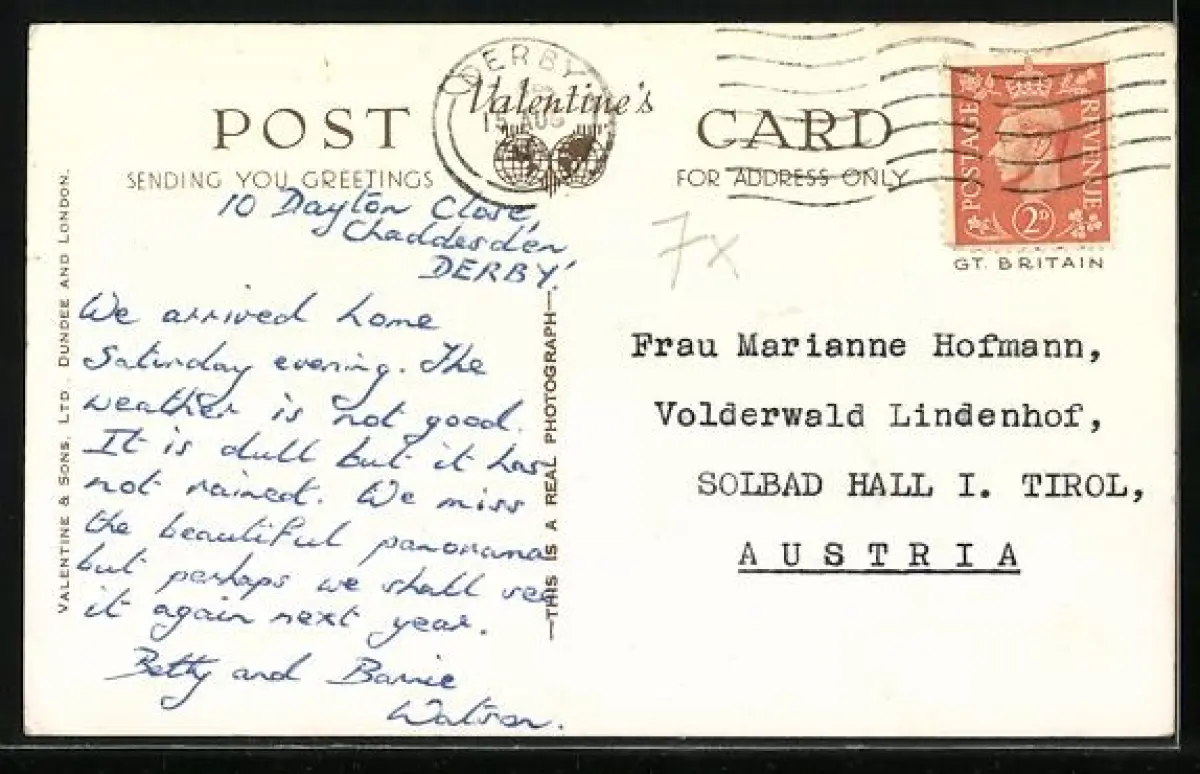 POST CARD
Valentine's
DERBY
15 AUG
SENDING YOU GREETINGS
FOR ADDRESS ONLY
POSTAGE
REVENUE
2D
GT. BRITAIN
7x
10 Dayton Close,
Chaddesden
DERBY.
We arrived home
Saturday evening. The
weather is not good.
It is dull but it has
not rained. We miss
the beautiful panorama
but perhaps we shall see
it again next year.
Betty and Barrie
Watson.
VALENTINE & SONS, LTD. DUNDEE AND LONDON.
—THIS IS A REAL PHOTOGRAPH—
Frau Marianne Hofmann,
Volderwald Lindenhof,
SOLBAD HALL I. TIROL,
AUSTRIA